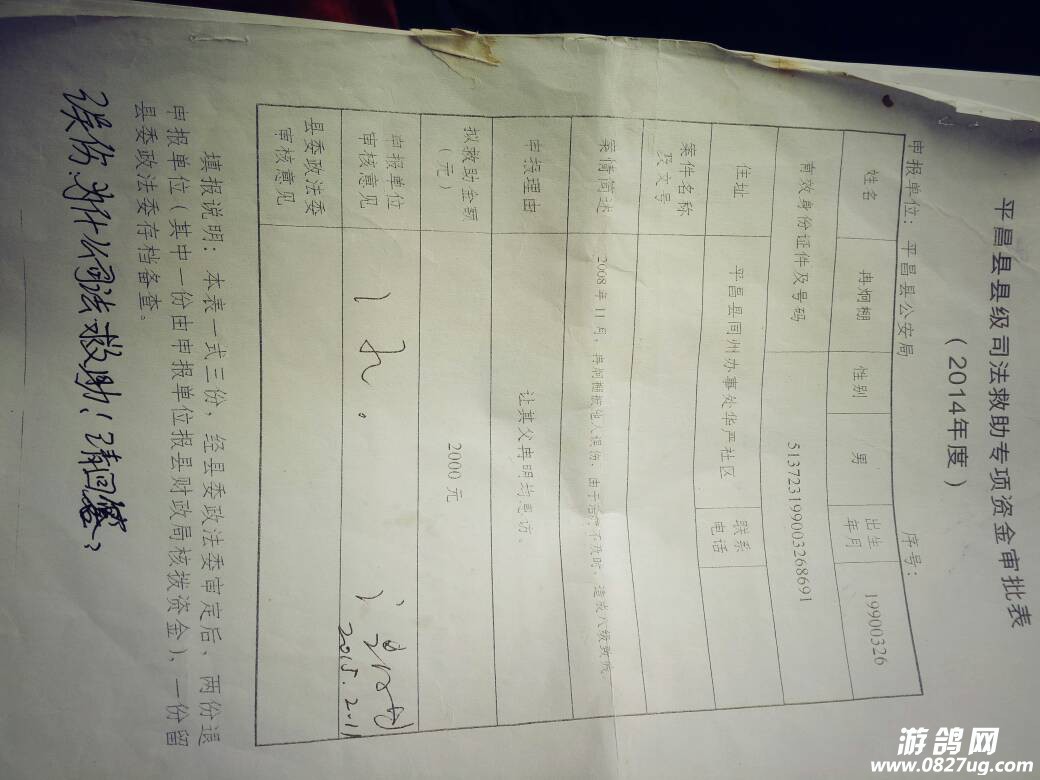 平昌县县级司法救助专项资金审批表
(2014年度)
申报单位：平昌县公安局 序号：
姓名 冉炯棚 性别 男 出生年月 19900326
有效身份证件及号码 513723199003268691
住址 平昌县同州办事处华严社区 联系电话
案件名称及文号
案情简述 2008年11月，冉炯棚被他人误伤，由于治疗不及时，造成八级致残。
申报理由 让其父冉明均息访。
拟救助金额(元) 2000元
申报单位审核意见
2015.2.11
县委政法委审核意见
填报说明：本表一式三份，经县委政法委审定后，两份退
申报单位(其中一份由申报单位报县财政局核拨资金)，一份留
县委政法委存档备查。
误伤.为什么司法救助!请回答?
游鸽网
www.0827ug.com